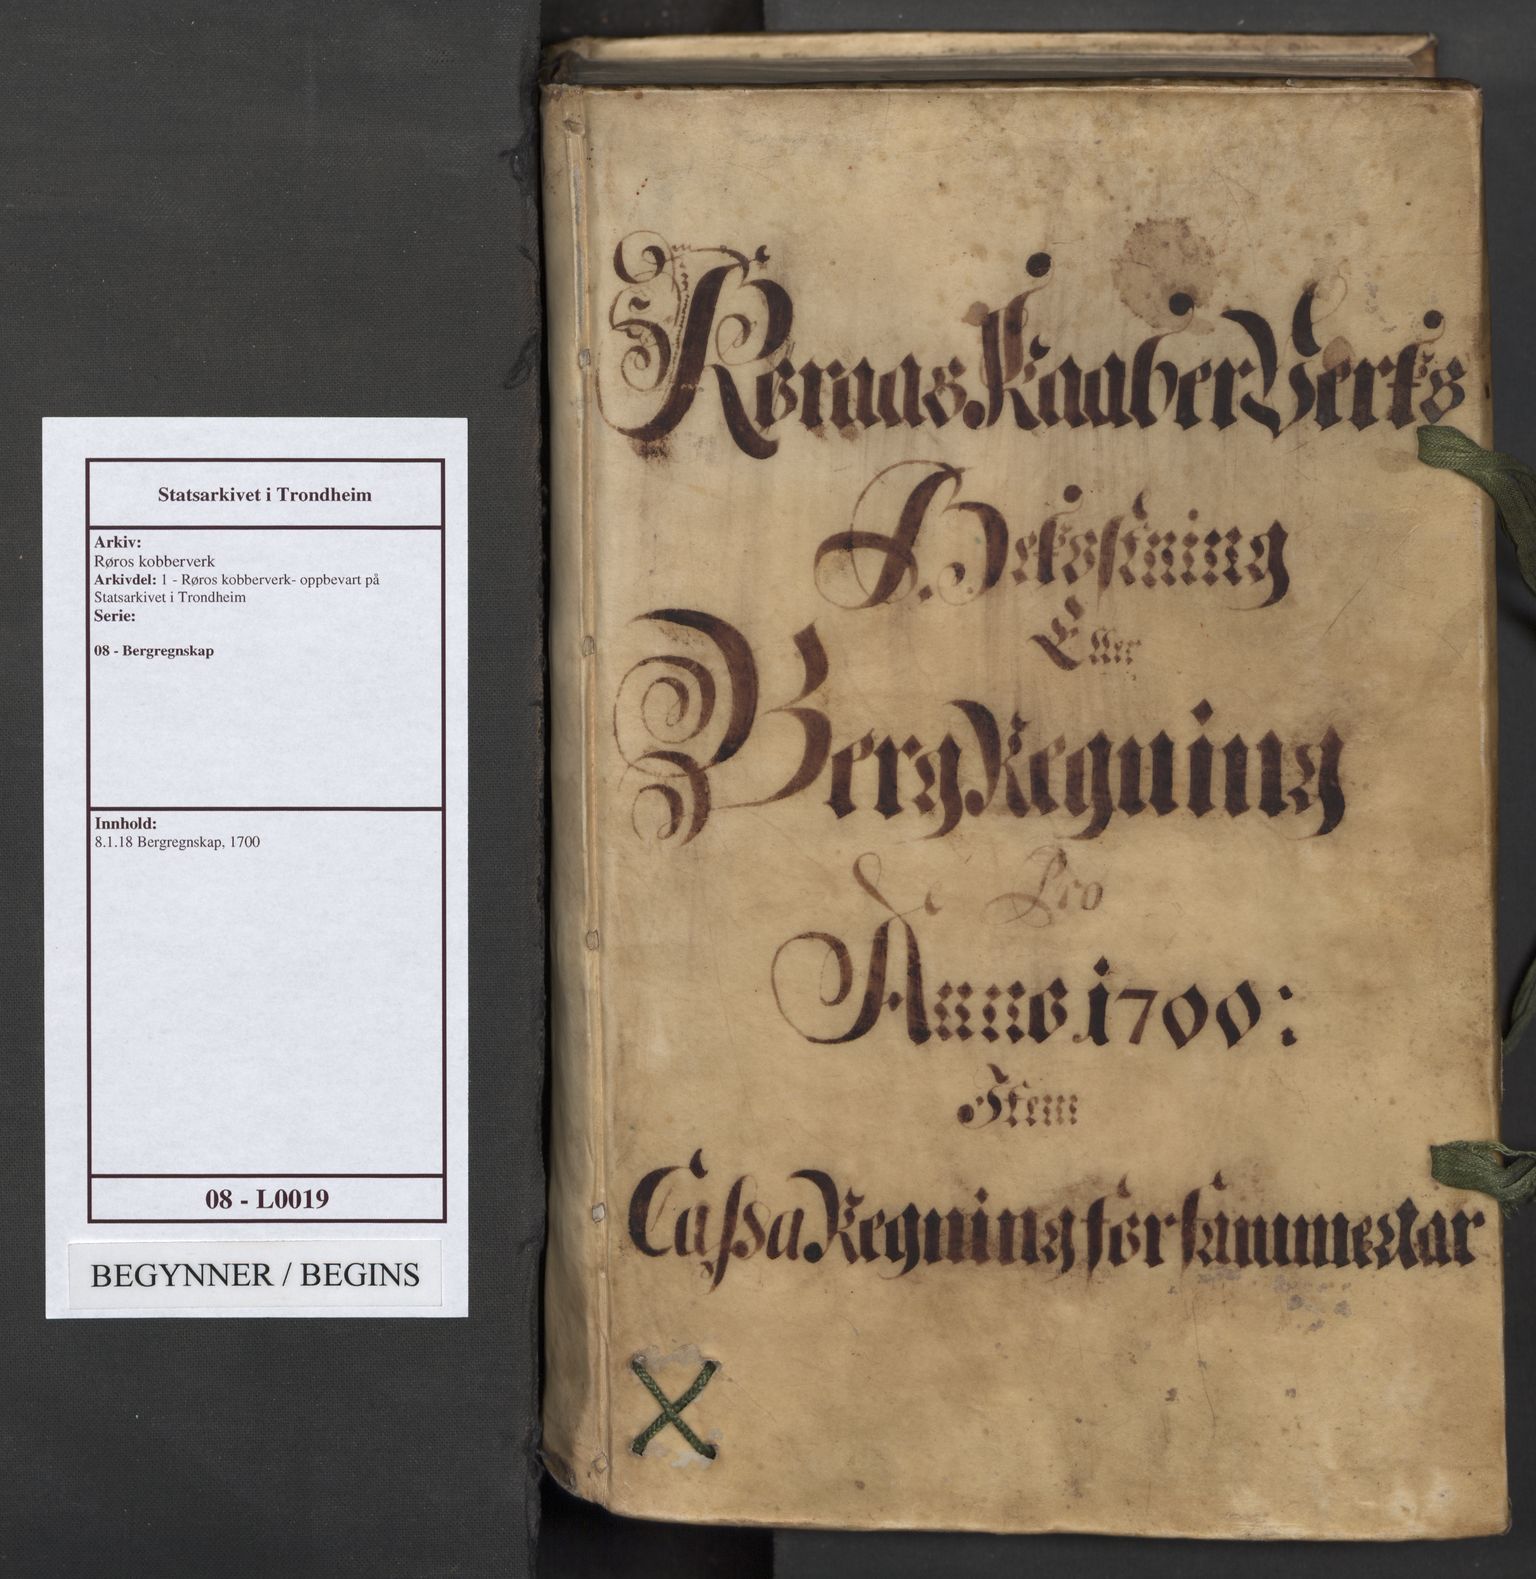 Statsarkivet i Trondheim
Arkiv:
Røros kobberverk
Arkivdel: 1 - Røros kobberverk- oppbevart på
Statsarkivet i Trondheim
Serie:
08 - Bergregnskap
Innhold:
8.1.18 Bergregnskap, 1700
08 - L0019
BEGYNNER / BEGINS
Roraas Kaaber Verks
Bekostning
Eller
Berg Regning
de Pro
Anno 1700:
Item
Cassa Regning for samme Aar